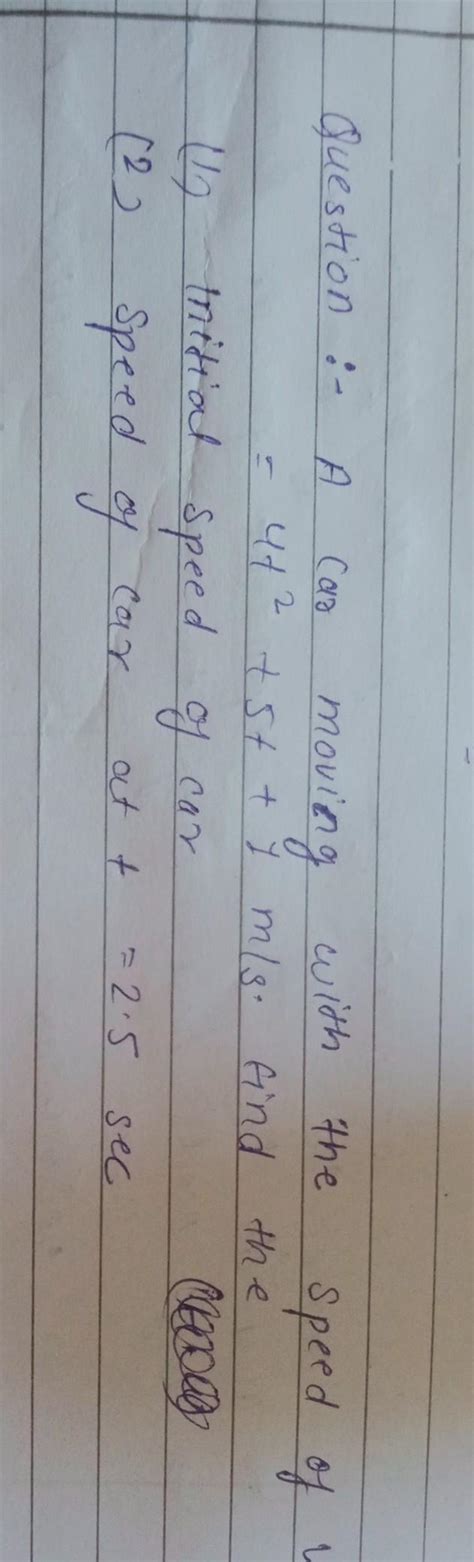 Question :- A car moving with the speed of v
= 4t² + 5t + 1 m/s. find the
(1) Initial speed of car
(2) Speed of car at t = 2.5 sec